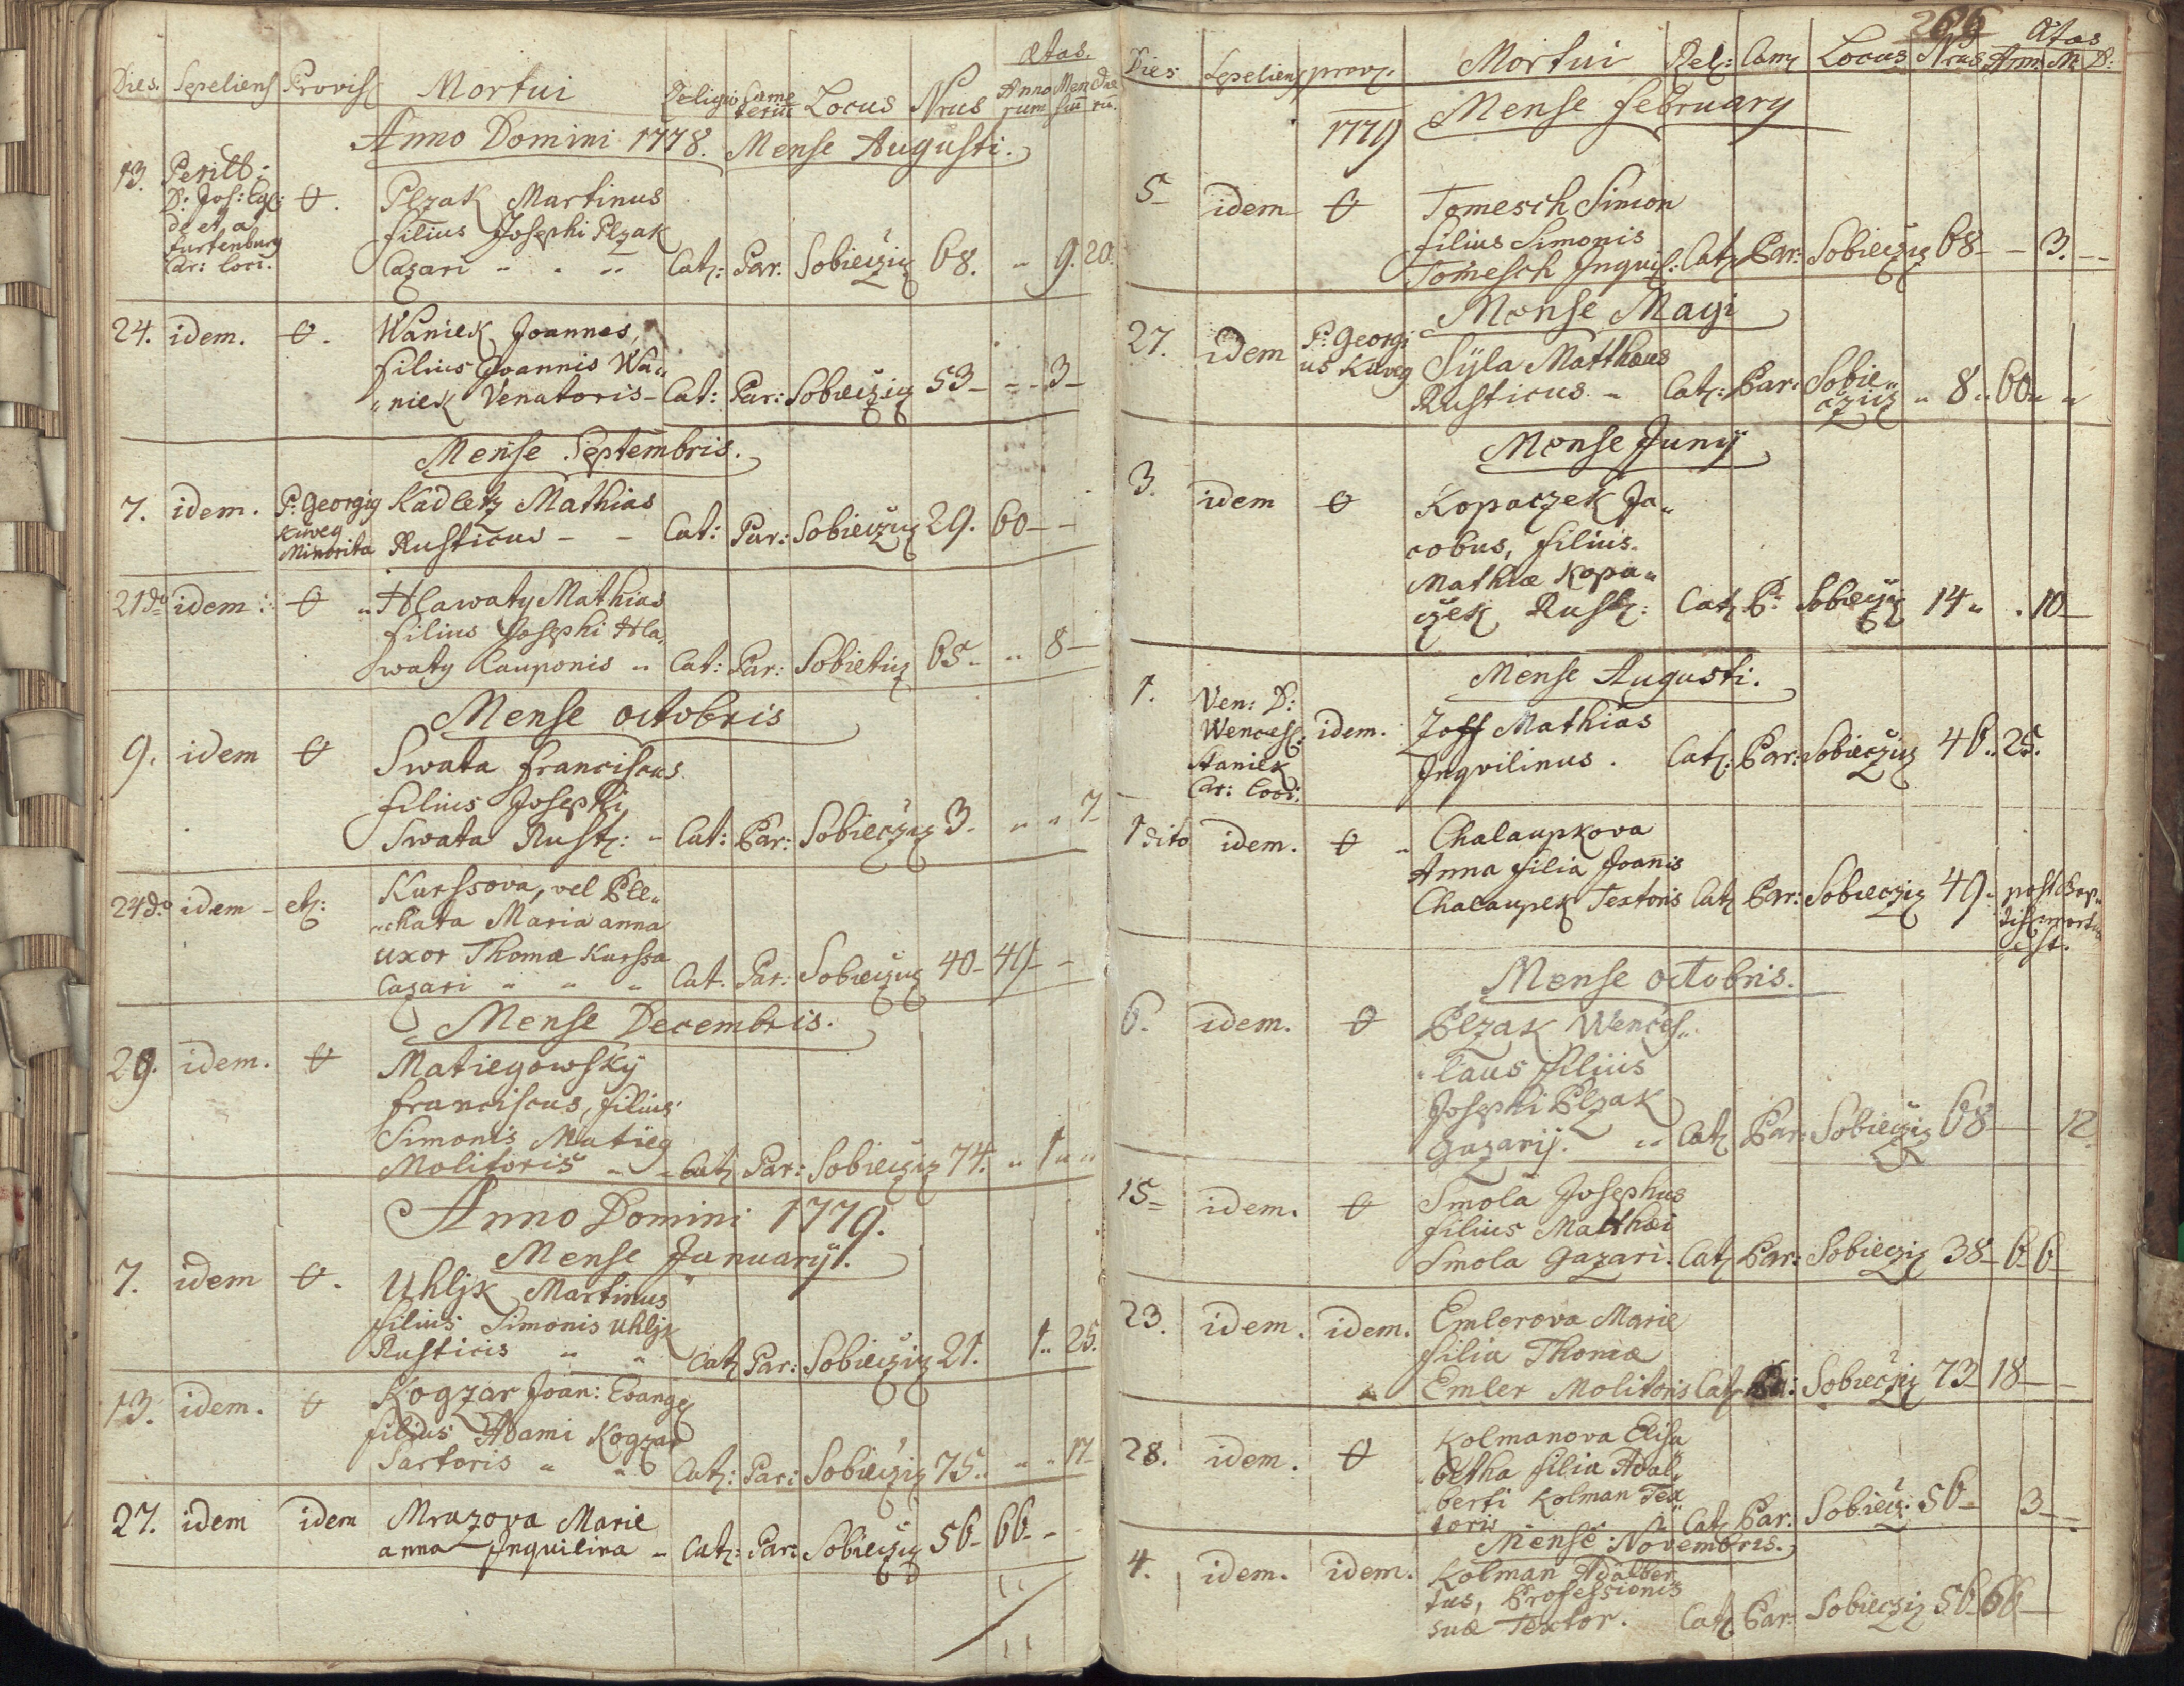 Ætas.
Dies. Sepeliens Provis. Mortui Religio Cæmeteriū Locus Nrus Annorum Mensiū Dierū.
Anno Domini 1778. Mense Augusti.
13. Perill: D: Jos: de et a Furtenburg Car: Loci. O. Plzak Martinus
filius Josephi Plzak
Cazari Cat: Par. Sobieczicz 68. " 9. 20.
24. idem. O. Waniek Joannes,
filius Joannis Wa„
„niek Venatoris Cat: Par: Sobieczicz 53 - 3 -
Mense Septembris.
7. idem. P. Georgig Kuweg Minorita Kadletz Mathias
Rusticus - - Cat: Par: Sobieczicz 29. 60 - -
21 do idem: O „Hlawaty Mathias
filius Josephi Hla„
waty Cauponis „ Cat: Par: Sobieticz 65 - „ 8 -
Mense octobris
9. idem O Swata franciscus
filius Josephi
Swata Rust: „ Cat: Par: Sobieczicz 3. „ „ 7
24 do idem - et: Kurssova, vel Ple„
„chata Maria anna
uxor Thomæ Kurssa
Cazari „ „ „ Cat. Par: Sobieczicz 40 - 49 - -
Mense Decembris.
29. idem. O Matiegowskÿ
franciscus, filius
Simonis Matieg
Molitoris „ - Cat: Par: Sobieczicz 74. „ 1 „ „
Anno Domini 1779.
Mense Januarÿ.
7. idem O. Uhljk Martinus
filius Simonis Uhljk
Rusticis „ „ Cat: Par: Sobieczicz 21. 1 „ 25.
13. idem. O Kogzar Joan: Evang:
filius Adami Kogzar
Sartoris „ „ Cat: Par: Sobieczicz 75. „ „ 17
27. idem idem Mrazova Marie
anna Inquilina - Cat: Par: Sobieczicz 56 - 66 - -
266
Ætas
Dies Sepeliens prov: Mortui Rel: Cæm: Locus Nrus Ann: M: D:
1779 Mense february
5 idem O Tomesch Simon
filius Simonis
Tomesch Inquil: Cat: Par: Sobieczicz 68 - - 3. - -
Mense Magi
27. idem P. Georgius Kuweg Sÿla Matthæus
Rusticus „ Cat: Par: Sobie„czicz „ 8 „ 60 „ „
Mense Junÿ
3. idem O Kopaczek Ja„
cobus, filius
Mathiæ Kopa„
czek Rust: Cat: P: Sobieczicz 14 „ . 10 -
Mense Augusti.
1. Ven: D: Wencesl: Staniek Car: Loci. idem. Zoff Mathias
Inqvilinus. Cat: Par: Sobieczicz 46 „ 25.
1 dito idem. O „ Chalaupkova
Anna filia Joanis
Chalaupek Textoris Cat: Par: Sobieczicz 49 „ post Bap„tis: mortua est.
Mense octobris.
6. idem. O Plzak Wences„
„laus filius
Josephi Plzak
Gazarÿ. „ Cat: Par: Sobieczicz 68 - 12.
15 idem. O Smola Josephus
filius Matthæi
Smola Gazari. Cat: Par: Sobieczicz 38 - 6 - 6 -
23. idem. idem. Emlerova Marie
filia Thomæ
Emler Molitoris Cat: Par: Sobieczicz 73 18 - -
28. idem. O Kolmanova Elisa
betha filia Adal„
„berti Kolman Tex
toris Cat: Par: Sobiecz: 56 - 3 - -
Mense Novembris.
4. idem. idem. Kolman Adalber
tus, Professionis
suæ Textor. Cat: Par: Sobieczicz 56 66 -